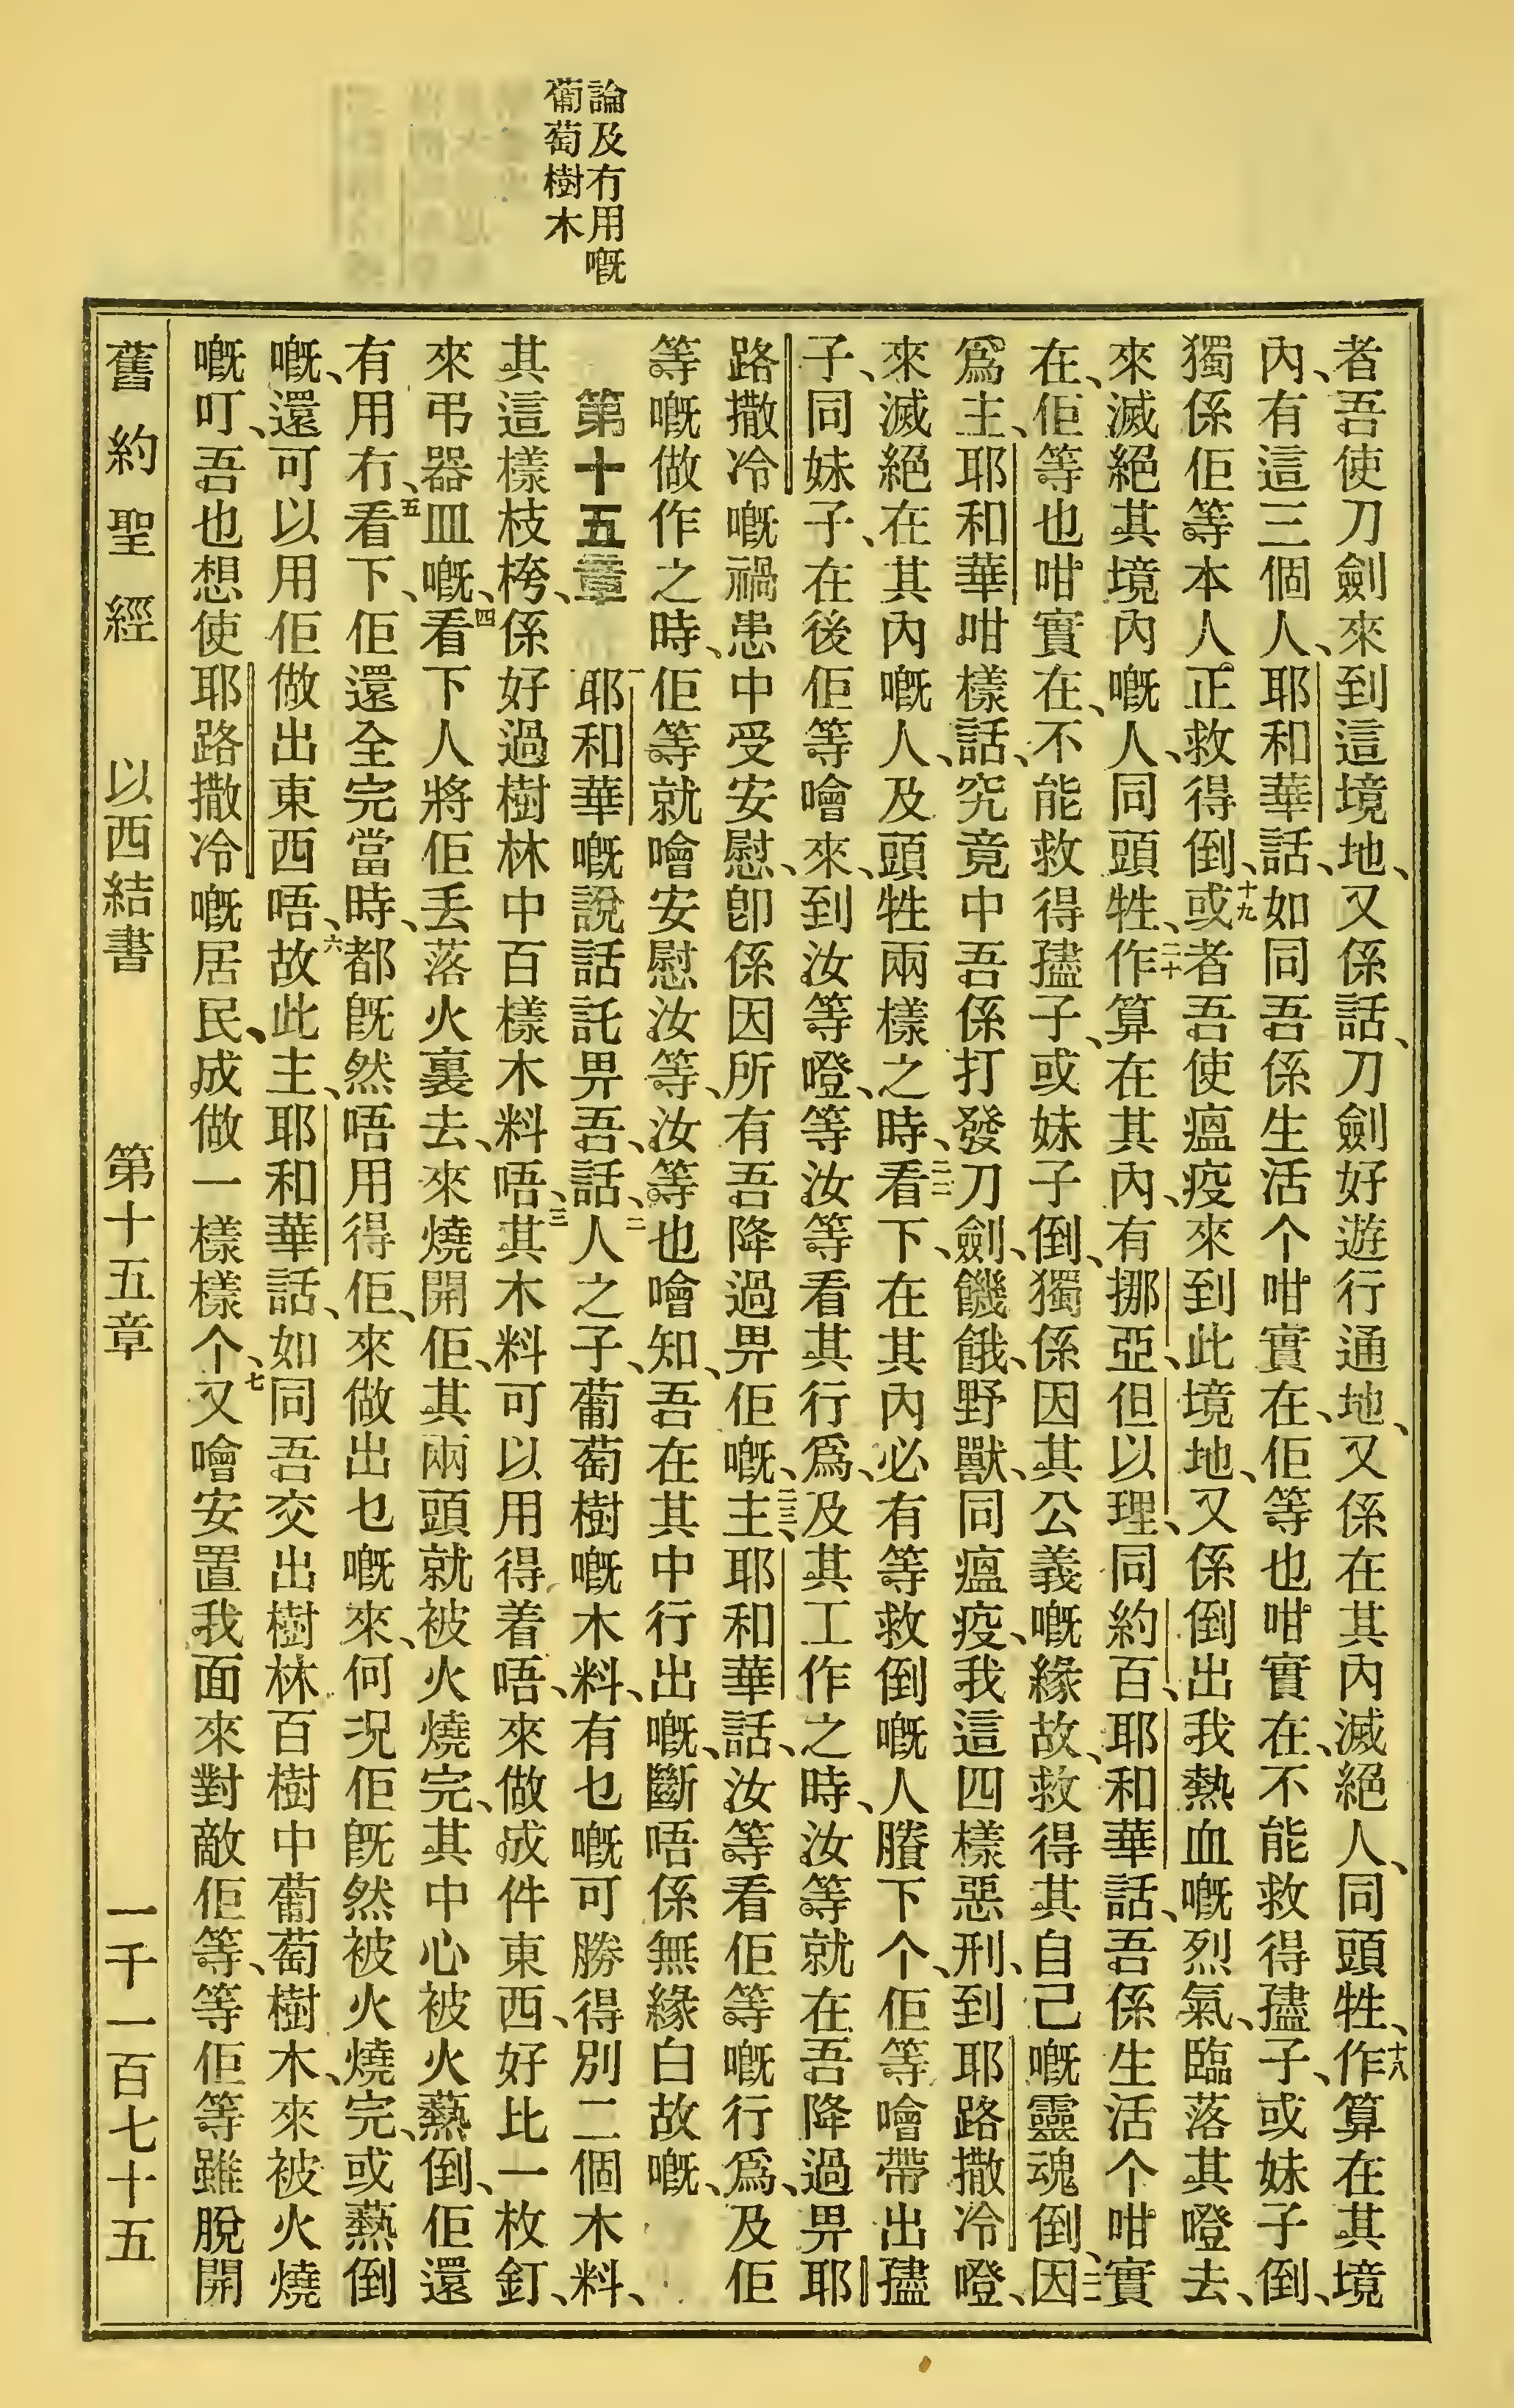 論及冇用嘅
葡萄樹木
者吾使刀劍來到這境地、又係話、刀劍好遊行通地、又係在其內滅絕人、同頭牲、十八作算在其境
內、有這三個人、耶和華話、如同吾係生活个咁實在、佢等也咁實在、不能救得孻子、或妹子倒、
獨係佢等本人正救得倒、十九或者吾使瘟疫來到此境地、又係倒出我熱血嘅烈氣、臨落其嶝去、
來滅絕其境內嘅人、同頭牲、二十作算在其內、有挪亞、但以理、同約百、耶和華話、吾係生活个咁實
在、佢等也咁實在、不能救得孻子、或妹子倒、獨係因其公義嘅緣故、救得其自己嘅靈魂倒、二一因
爲主、耶和華咁樣話、究竟中吾係打發刀劍、饑餓、野獸、同瘟疫、我這四樣惡刑、到耶路撒冷嶝、
來滅絕在其內嘅人、及頭牲兩樣之時、二二看下、在其內必有等救倒嘅人賸下个、佢等噲帶出孻
子、同妹子、在後佢等噲來到汝等嶝、等汝等看其行爲、及其工作之時、汝等就在吾降過畀耶
路撒冷嘅禍患中受安慰、卽係因所有吾降過畀佢嘅、二三主、耶和華話、汝等看佢等嘅行爲、及佢
等嘅做作之時、佢等就噲安慰汝等、汝等也噲知、吾在其中行出嘅、斷唔係無緣白故嘅、
第十五章 一耶和華嘅說話託畀吾、話、二人之子、葡萄樹嘅木料、有乜嘅可勝得別二個木料、
其這樣枝桍、係好過樹林中百樣木料唔、三其木料可以用得着唔、來做成件東西、好比一枚釘、
來弔器皿嘅、四看下人將佢丢落火裏去、來燒開佢、其兩頭就被火燒完、其中心被火爇倒、佢還
有用冇、五看下、佢還全完當時、都旣然唔用得佢、來做出乜嘅來、何況佢旣然被火燒完、或爇倒
嘅、還可以用佢做出東西唔、六故此主、耶和華話、如同吾交出樹林百樹中葡萄樹木、來被火燒
嘅叮、吾也想使耶路撒冷嘅居民、成做一樣樣个、七又噲安置我面來對敵佢等、等佢等雖脫開
舊約聖經 以西結書 第十五章 一千一百七十五